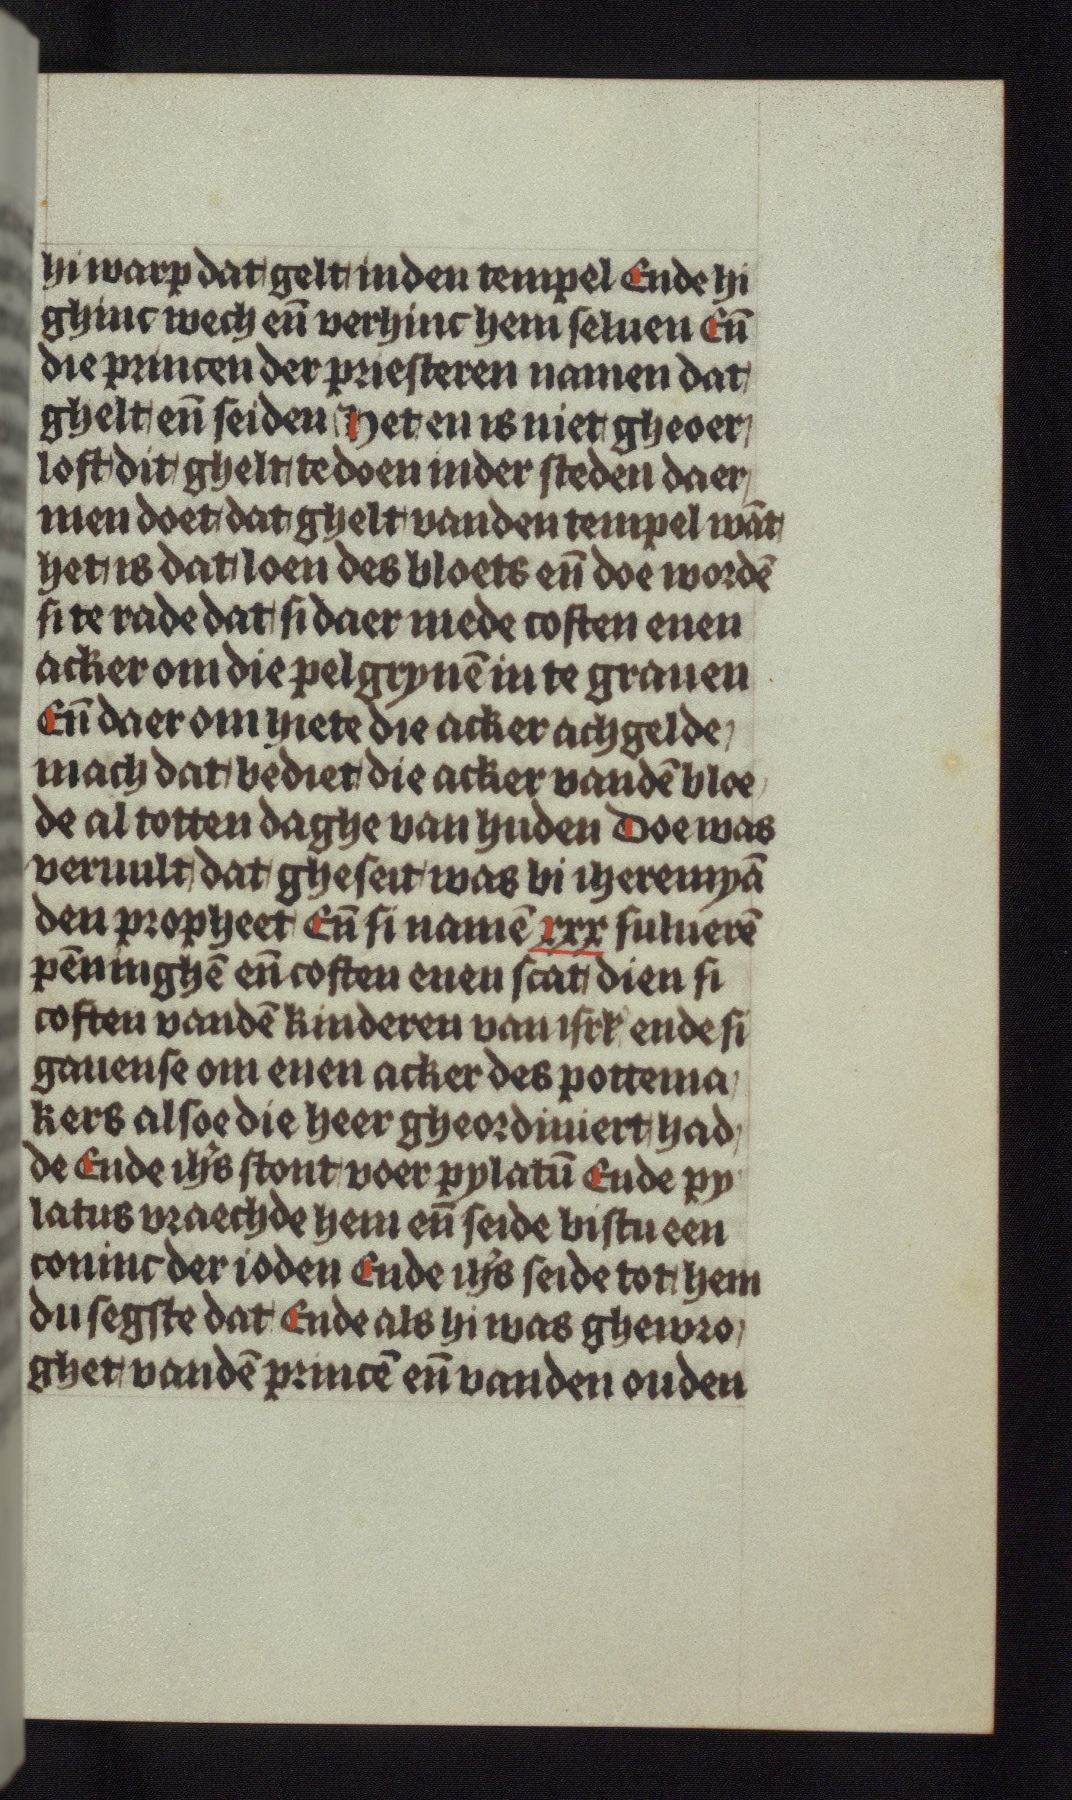 hi warp dat gelt in den tempel Ende hi
ghinc wech en̄ verhinc hem seluen En̄
die princen der priesteren namen dat
ghelt en̄ seiden Het en is niet gheoer
loft dit ghelt te doen in der steden daer
men doet dat ghelt vanden tempel wāt
het is dat loen des bloets en̄ doe wordē
si te rade dat si daer mede costen enen
acker om die pelgrynē in te grauen
En̄ daer om hiete die acker achgelde
mach dat bediet die acker vandē bloe
de al totten daghe van huden Doe was
veruult dat gheseit was bi iheremyā
den propheet En̄ si namē xxx suluerē
pēninghē en̄ costen enen scat dien si
costen vandē kinderen van isrl ende si
gauense om enen acker des pottema
kers alsoe die heer gheordiniert had
de Ende ihs̄ stont voer pylatū Ende py
latus vraechde hem en̄ seide bistu een
coninc der ioden Ende ihs̄ seide tot hem
du segste dat Ende als hi was ghewro
ghet vandē princē en̄ vanden ouden